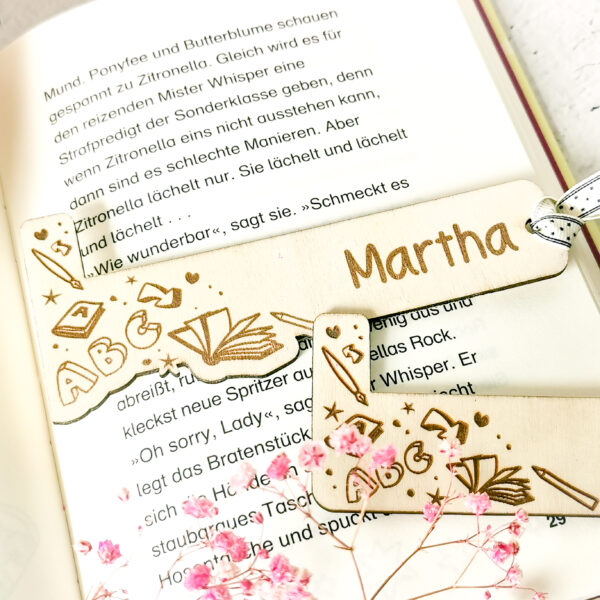 Mund. Ponyfee und Butterblume schauen
gespannt zu Zitronella. Gleich wird es für
den reizenden Mister Whisper eine
Strafpredigt der Sonderklasse geben, denn
wenn Zitronella eins nicht ausstehen kann,
dann sind es schlechte Manieren. Aber
Zitronella lächelt nur. Sie lächelt und lächelt
und lächelt . . .
»Wie wunderbar«, sagt sie. »Schmeckt es
Martha
A
ABC
wenig aus und
abreißt, ellas Rock.
kleckst neue Spritzer Whisper. Er
»Oh sorry, Lady«,
legt das Bratenstück
ABC
sich die
staubgraues
Hosentasche und spuckt
29